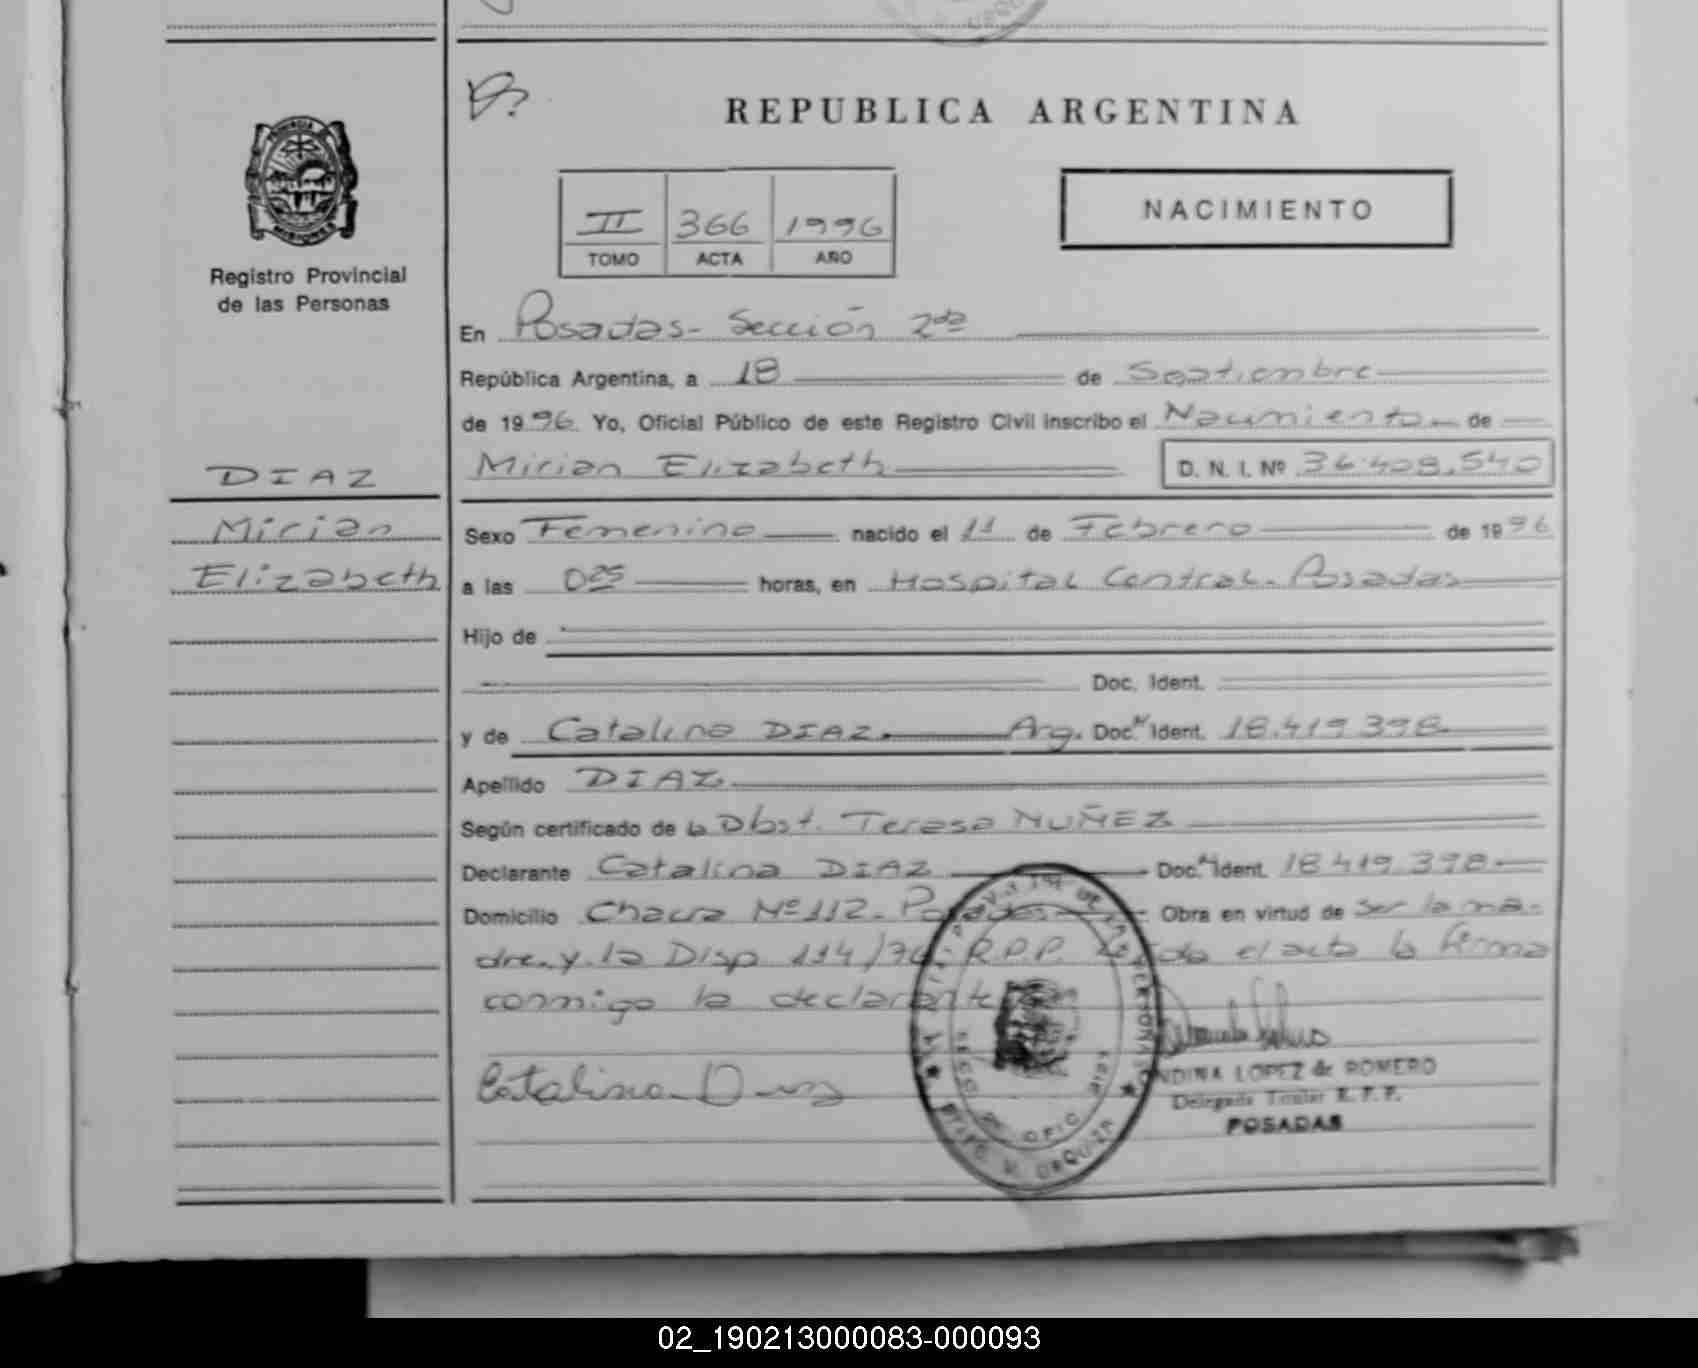 REPUBLICA ARGENTINA
PROVINCIA DE
MISIONES
Registro Provincial
de las Personas
II 366 1996
TOMO ACTA AÑO
NACIMIENTO
En Posadas - Sección 2da
República Argentina, a 18 de Septiembre
de 1996 Yo, Oficial Público de este Registro Civil inscribo el Nacimiento de
Mirian Elizabeth D. N. I. Nº
DIAZ
Mirian
Elizabeth
Sexo Femenino nacido el 11 de Febrero de 1996
a las 025 horas, en Hospital Central - Posadas
Hijo de
Doc. Ident.
y de Catalina DIAZ. Arg. Doc. N Ident. 18.419.398
Apellido DIAZ.
Según certificado de la Obst. Teresa NUÑEZ
Declarante Catalina DIAZ Doc. N Ident. 18.419.398.
Domicilio Chacra Nº 112 - Posadas Obra en virtud de ser la ma-
dre y la Disp 114/76 R.P.P. Leída el acta la firma
conmigo la declarante
Catalina Diaz
LOPEZ de ROMERO
Delegada Titular R. P. P.
POSADAS
02_190213000083-000093